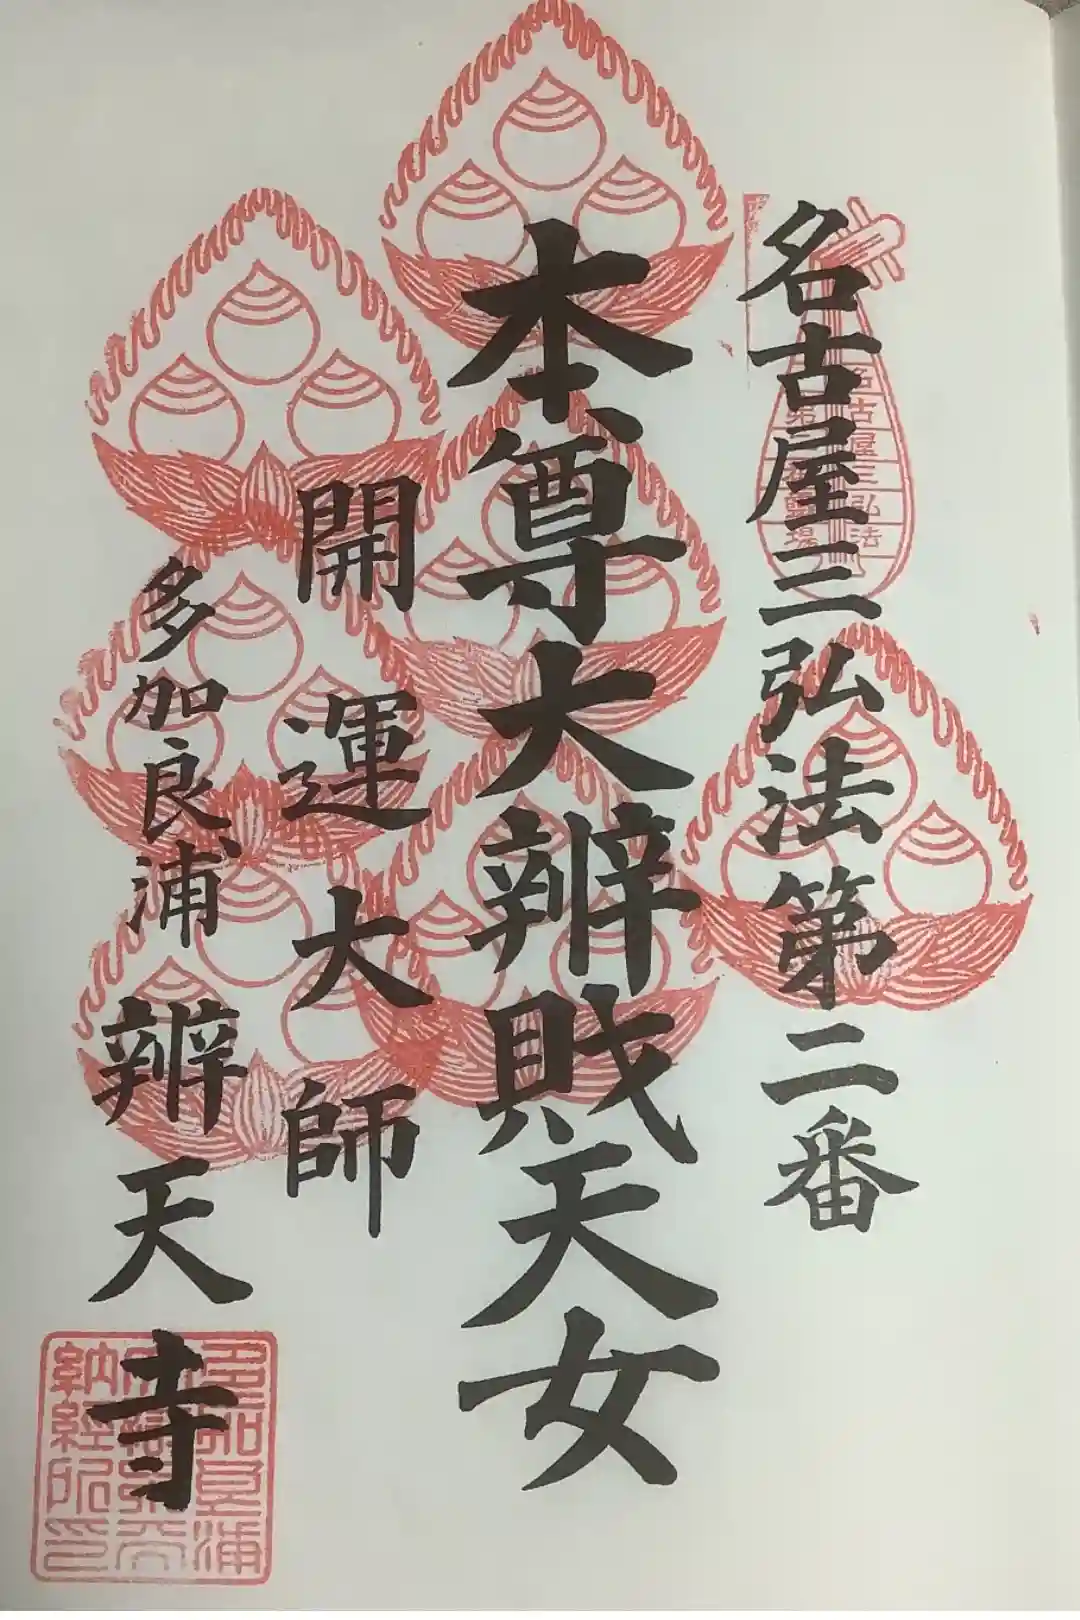 名古屋三弘法第二番
本尊大辨財天女
開運大師
多加良浦辨天寺
名古屋三弘法
多加良浦
納経所印